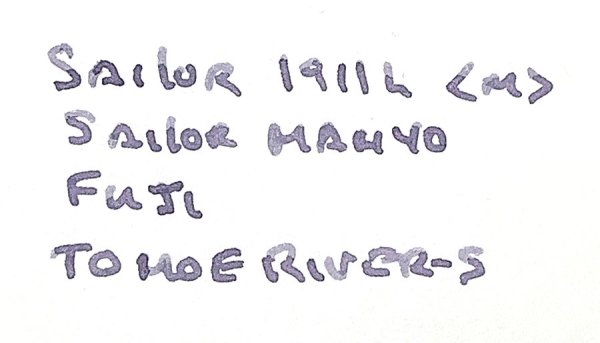 SAILOR 1911L <M>
SAILOR MANYO
FUJI
TOMOE RIVER-S